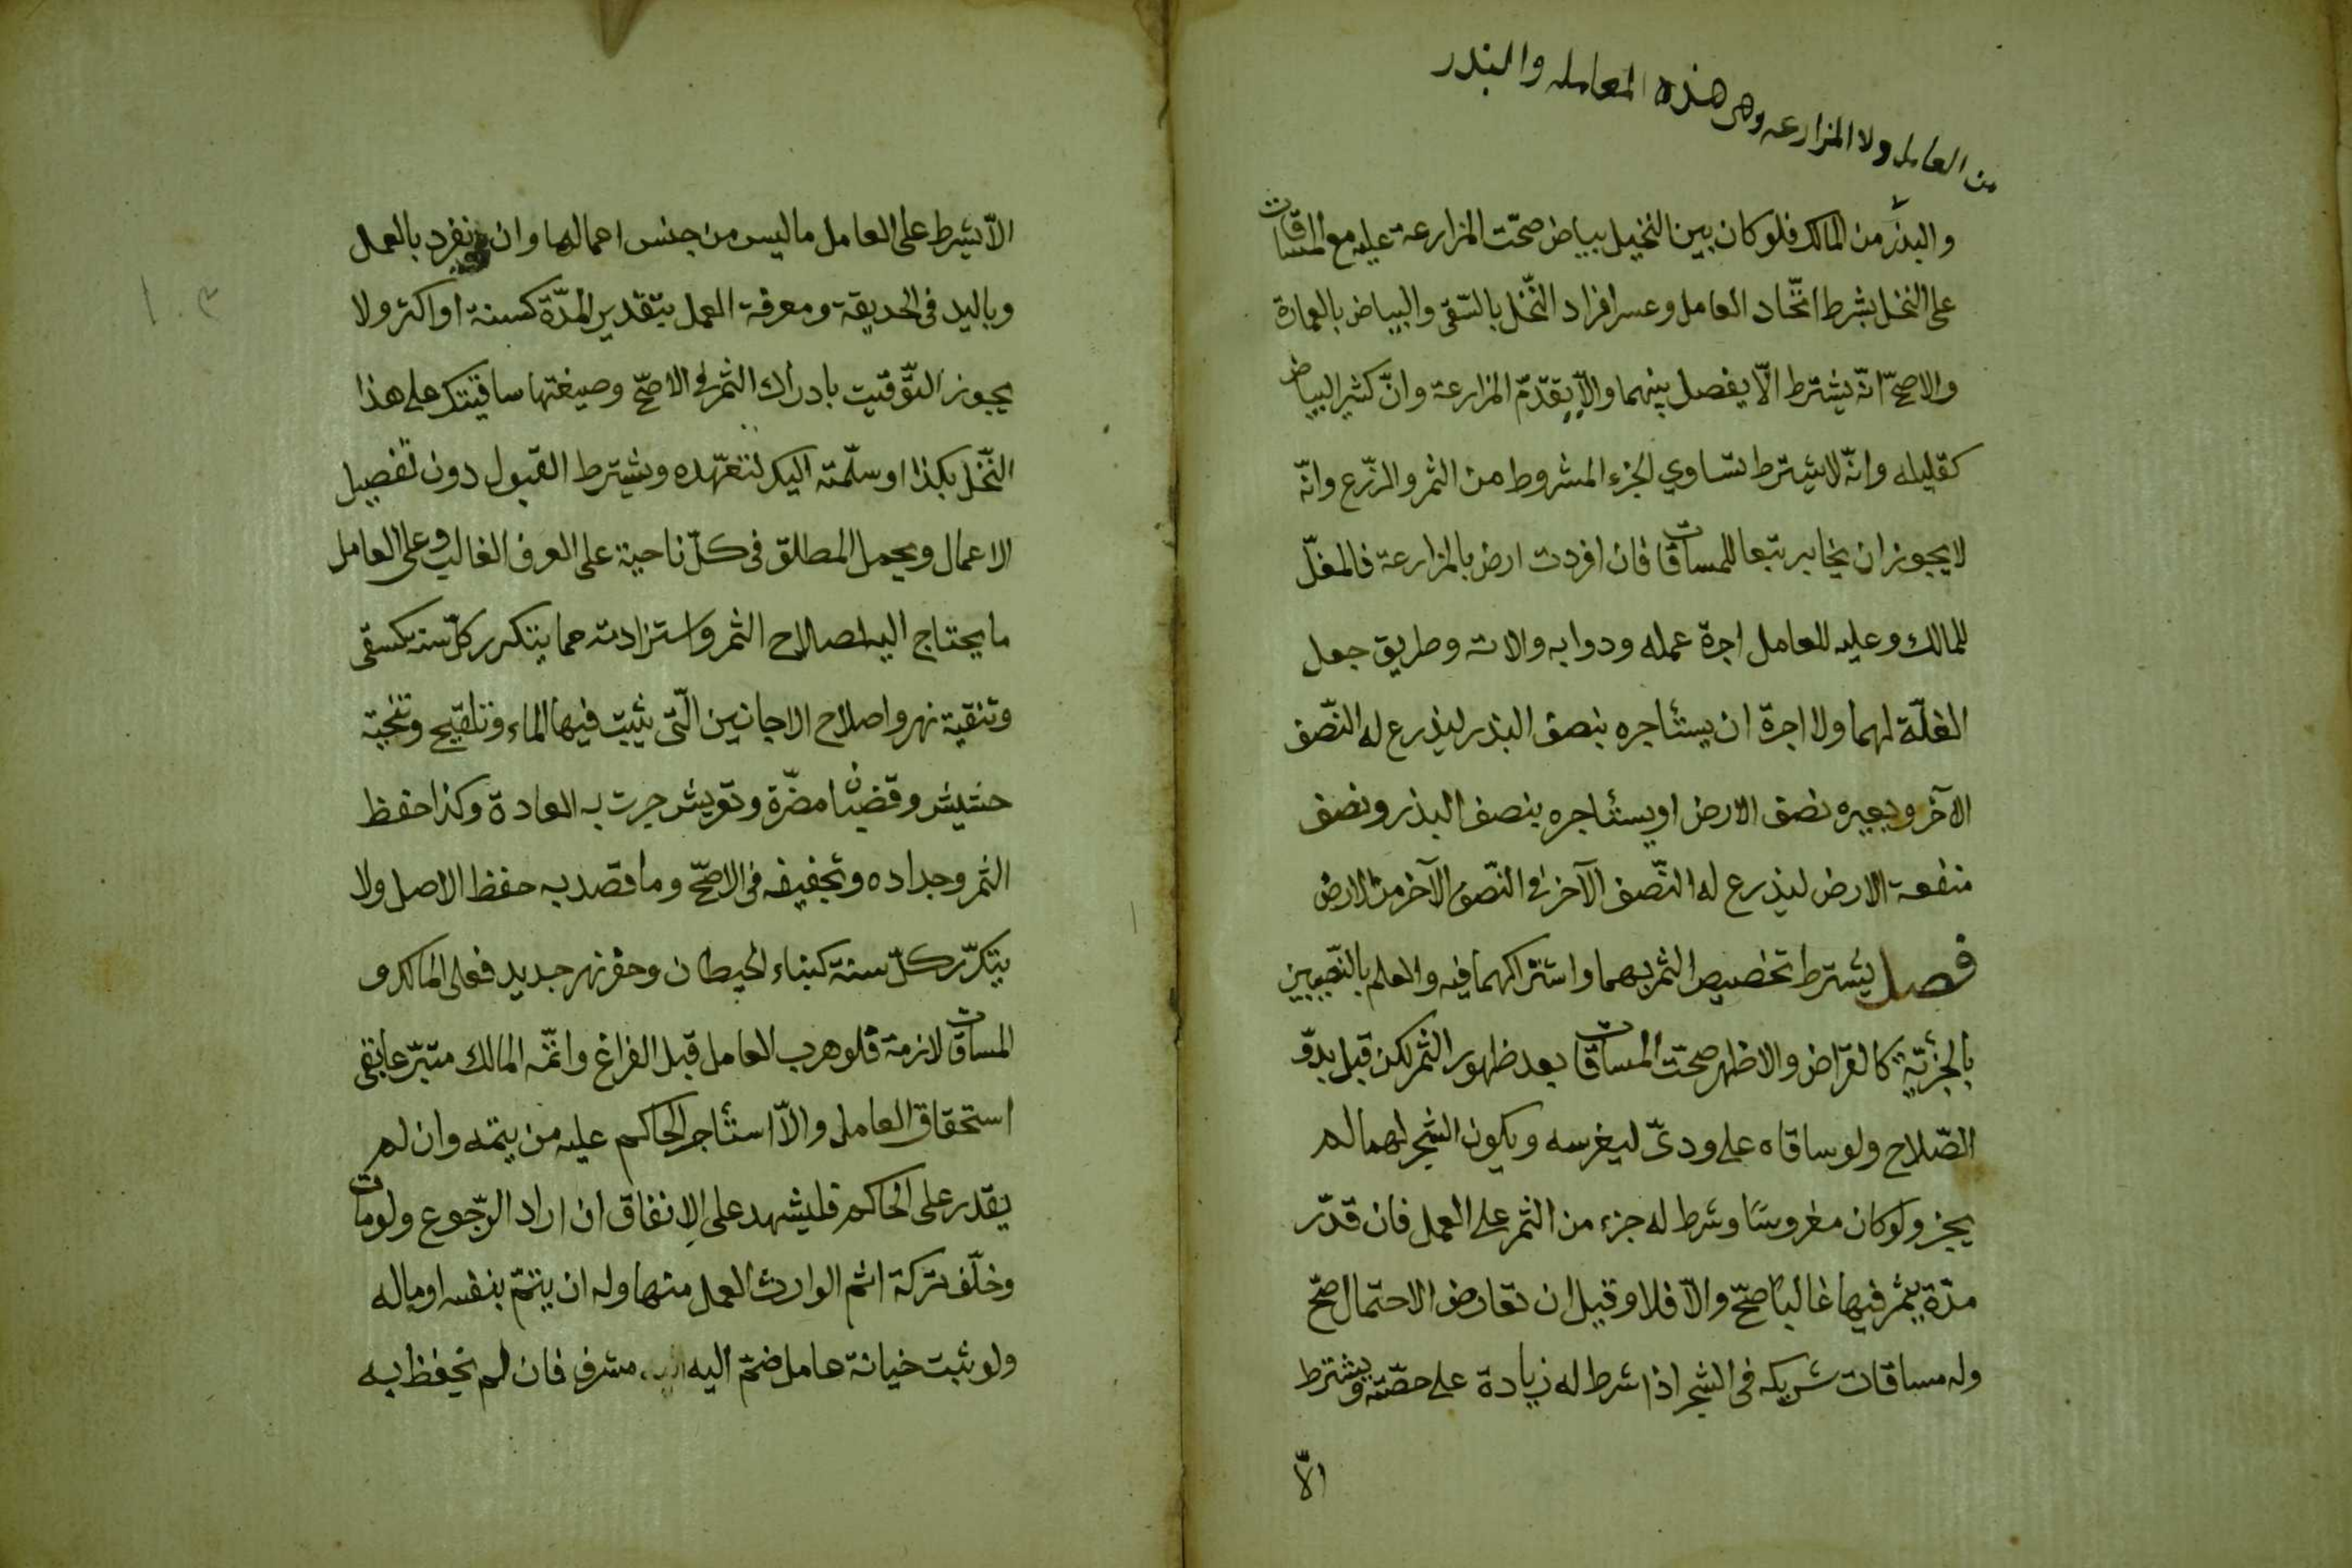 من العامل ولا المزارعه وهى هذه المعامله والبذر
والبذر من المالك فلو كان بين النخيل بياض صحّت المزارعة عليه مع المساقات
على النخل بشرط اتّحاد العامل وعسر افراد النّخل بالسّقى والبياض بالعمارة
والاصحّ انّه يشترط الّا يفصل بينهما والّا يقدّم المزارعة وانّ كثير البياض
كقليله وانّه لا يشترط تساوي الجزء المشروط من الثمر والزّرع وانّه
لا يجوز ان يخابر تبعا للمساقات فان افردت ارض بالمزارعة فالمغلّ
للمالك وعليه للعامل اجرة عمله ودوابه والاته وطريق جعل
الغلّة لهما ولا اجرة ان يستأجره بنصف البذر ليذرع له النّصف
الآخر ويعيره نصف الارض او يستأجره بنصف البذر ونصف
منفعة الارض ليذرع له النّصف الآخر فى النّصف الآخر من الارض
فصل يشترط تخصيص الثمر بهما واشتراكهما فيه والعلم بالنّصيبين
بالجزئيّة كالقراض والاظهر صحّت المساقات بعد ظهور الثمر لكن قبل بدوّ
الصّلاح ولو ساقاه على ودىّ ليغرسه ويكون الشجر لهما لم
يجز ولو كان مغروسًا وشرط له جزء من الثمر على العمل فان قدّر
مدّة يثمر فيها غالبًا صحّ والّا فلا وقيل ان تعارض الاحتمال صحّ
وله مساقات شريكه فى الشجر اذا شرط له زيادة على حصّته ويشترط
الّا
الّا يشرط على العامل ما ليس من جنس اعمالها وان ينفرد بالعمل
وباليد فى الحديقة ومعرفة العمل بتقدير المدّة كسنة او اكثر ولا
يجوز التّوقيت بادراك الثمر فى الاصحّ وصيغتها ساقيتك على هذا
النّخل بكذا او سلّمته اليك لتتعهّده ويشترط القبول دون تفصيل
الاعمال ويحمل المطلق فى كلّ ناحية على العرف الغالب وعلى العامل
ما يحتاج اليه لصلاح الثمر واستزادته مما يتكرر كلّ سنه كسقى
وتنقية نهر واصلاح الاجانين الّتى يثبت فيها الماء وتلقيح وتنحية
حشيش وقضبان مضرّة وتعريش جرت به العادة وكذا حفظ
الثمر وجداده وتجفيفه فى الاصحّ وما قصد به حفظ الاصل ولا
يتكرّر كلّ سنة كبناء الحيطان وحفر نهر جديد فعلى المالك و
المساقات لازمة فلو هرب العامل قبل الفراغ واتمّه المالك متبرّعا بقى
استحقاق العامل والّا استأجر الحاكم عليه من يتمّه وان لم
يقدر على الحاكم فليشهد على الانفاق ان اراد الرّجوع ولو مات
وخلّف تركة اتم الوارث العمل منها وله ان يتمّ بنفسه او ماله
ولو ثبت خيانة عامل ضمّ اليه مشرف فان لم يتحفظ به
١٠٣